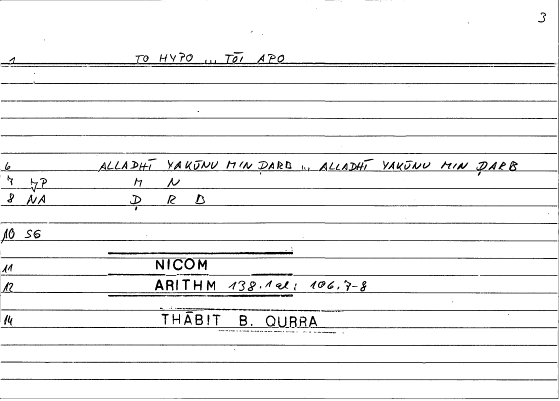 3
1 TO HYPO ... TŌI APO
6 ALLADHĪ YAKŪNU MIN ḌARB ... ALLADHĪ YAKŪNU MIN ḌARB
7 M N
8 NA Ḍ R B
10 SG
11 NICOM
12 ARITHM 138.1al; 106.7-8
14 THĀBIT B. QURRA